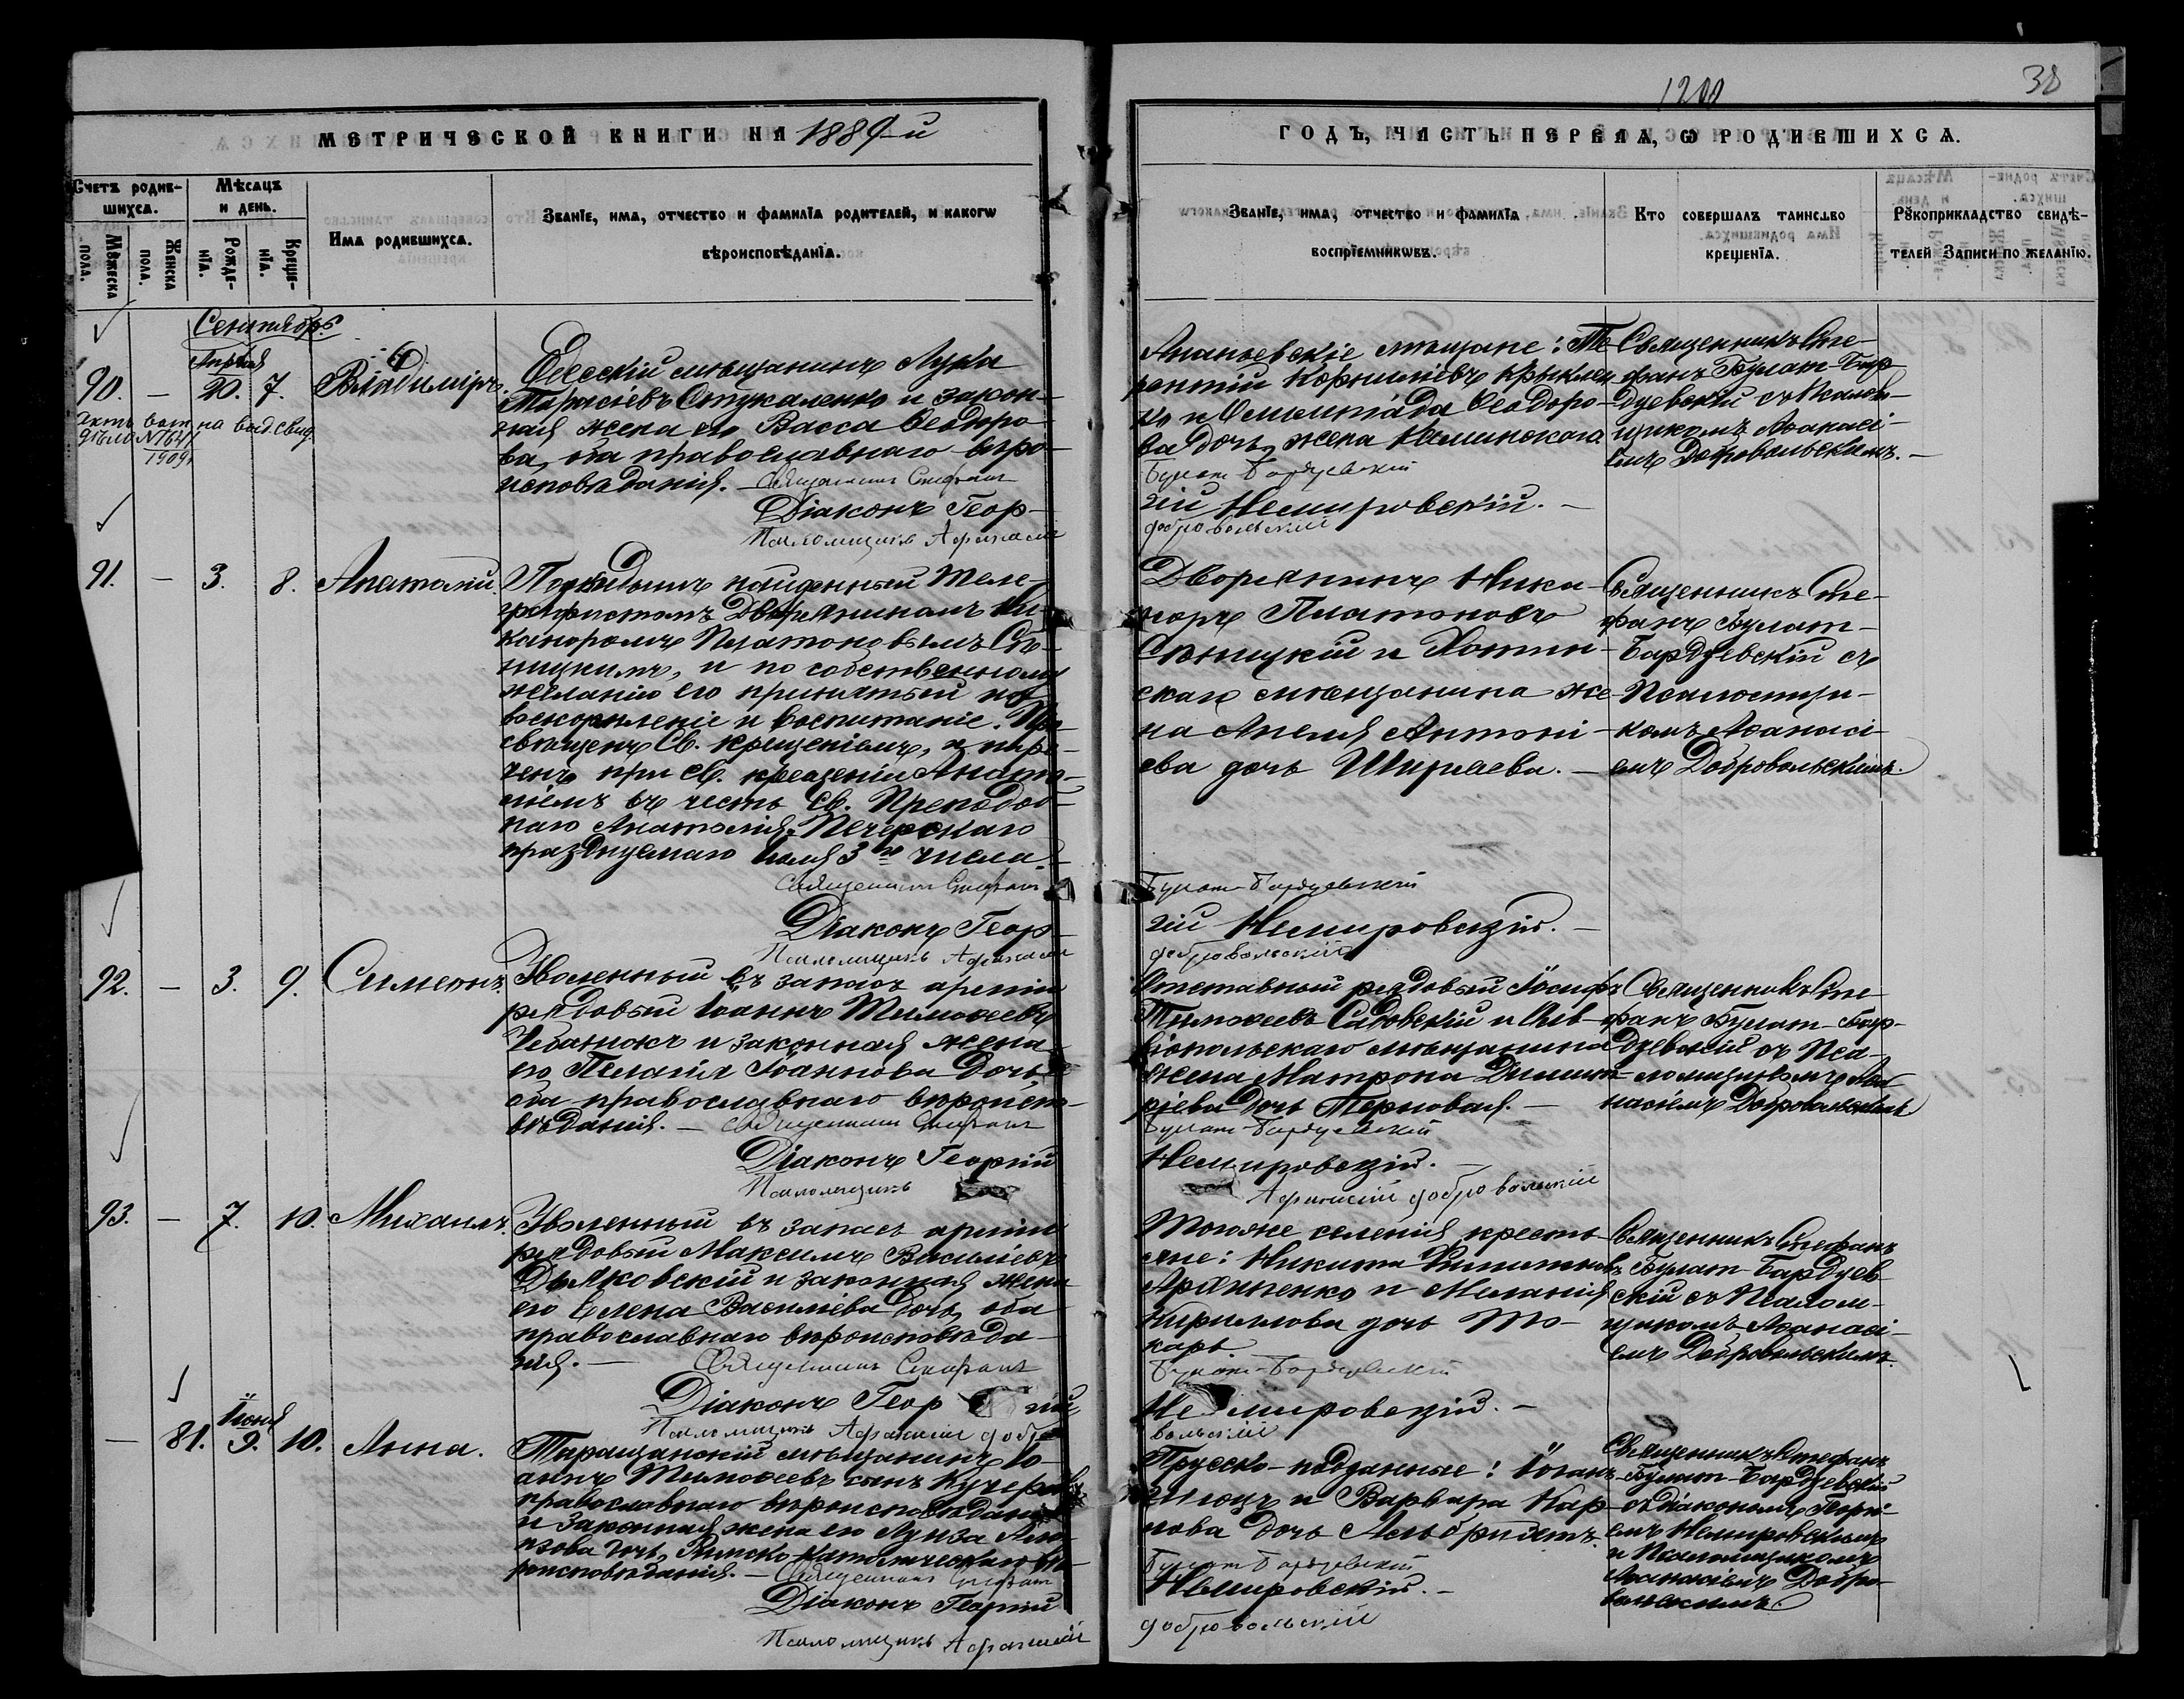 38
МЕТРИЧЕСКОЙ КНИГИ НА 1889-й
ГОДЪ, ЧАСТЬ ПЕРВАЯ, Ѡ РОДИВШИХСЯ.
Счетъ родив-
шихся.
Мѣсяцъ
и день.
Мꙋжеска
пола.
Женска
пола.
Рожде-
нїя.
Креще-
нїя.
Имя родившихся.
Званїе, имя, отчество и фамилїя родителей, и какогѡ
вѣроисповѣданїя.
Званїе, имя, отчество и фамилїя
воспрїемникѡвъ.
Кто совершалъ таинство
крещенїя.
Рꙋкоприкладство свидѣ-
телей записи по желанїю.
Сентябрь
Апрѣля
90. — 20. 7. Владиміръ.
на выд. свид.
1909
Одесскій мѣщанинъ Лука
Тарасіевъ Стукаленко и закон-
ная жена его Васса Ѳеодоро-
ва, оба православнаго вѣро-
исповѣданія. — Священникъ Стефанъ
Діаконъ Геор-
Псаломщикъ Афанасій
Ананьевскіе мѣщане: Те-
рентій Корниліевъ
Ѳеодоро-
ва дочь, жена
Булат-Бардзевскій
гій Немировскій. —
Добровольскій
Священникъ Сте-
фанъ Булат-Бар-
дзевскій съ Псалом-
щикомъ Аѳанасі-
емъ Добровольскимъ. —
91. — 3. 8. Анатолій.
Подкидышъ найденный теле-
графистомъ Дворяниномъ Ни-
каноромъ Платоновымъ Сѣ-
ницкимъ, и по собственному
желанію его принятый на
воскормленіе и воспитаніе. Про-
свѣщенъ Св. крещеніемъ, и наре-
ченъ при св. крещеніи Анато-
ліемъ въ честь св. Преподоб-
наго Анатолія Печерскаго
празднуемаго Іюля 3го числа. —
Священникъ Стефанъ
Діаконъ Геор-
Псаломщикъ Афанасій
Дворянинъ Ника-
норъ Платоновъ
Сѣницкій и Хотин-
скаго мѣщанина же-
на Анелія Антоні-
ева дочь Ширяева. —
Булат-Бардзевскій
гій Немировскій. —
Добровольскій
Священникъ Сте-
фанъ Булат-
Бардзевскій съ
Псаломщи-
комъ Аѳанасі-
емъ Добровольскимъ.
92. — 3. 9. Симеонъ.
Уволенный въ запасъ арміи
рядовый Іоаннъ Тимоѳеевъ
Чебанюкъ и законная жена
его Пелагія Іоаннова дочь,
оба православнаго вѣроиспо-
вѣданія. — Священникъ Стефанъ
Діаконъ Георгій
Псаломщикъ
Отставный рядовый Іосифъ
Тимоѳеевъ Садовскій и Оль-
віопольскаго мѣщанина
жена Матрона Димит-
ріева дочь Терновая. —
Булат-Бардзевскій
Немировскій. —
Афанасій Добровольскій
Священникъ Сте-
фанъ Булат-Бар-
дзевскій съ Пса-
ломщикомъ Аѳа-
насіемъ Добровольскимъ
93. — 7. 10. Михаилъ.
Уволенный въ запасъ арміи
рядовый Максимъ Василіевъ
Дьяковскій и законная жена
его Елена Василіева дочь, оба
православнаго вѣроисповѣда-
нія. — Священникъ Стефанъ
Діаконъ Геор гій
Псаломщикъ Афанасій Добро
Тогоже селенія кресть-
яне: Никита
и Меланія
Кириллова дочь То-
карь.
Булат-Бардзевскій
Не мировскій. —
вольскій
Священникъ Стефанъ
Булат-Бардзев-
скій съ Псалом-
щикомъ Аѳанасі-
емъ Добровольскимъ.
Іюня
— 81. 9. 10. Анна.
Таращанскій мѣщанинъ Іо-
аннъ Тимоѳеевъ сынъ
православнаго вѣроисповѣданія
и законная жена его Луиза
дочь, Римско-католическаго вѣ-
роисповѣданія. — Священникъ Стефанъ
Діаконъ Георгій
Псаломщикъ Афанасій
Прусско-подданные: Іоганъ
и Варвара Кар-
пова дочь
Булат-Бардзевскій
Немировскій. —
Добровольскій
Священникъ Стефанъ
Булат-Бардзевскій
съ діакономъ Георгі-
емъ Немировскимъ
и Псаломщикомъ
Аѳанасіемъ Добро-
вольскимъ